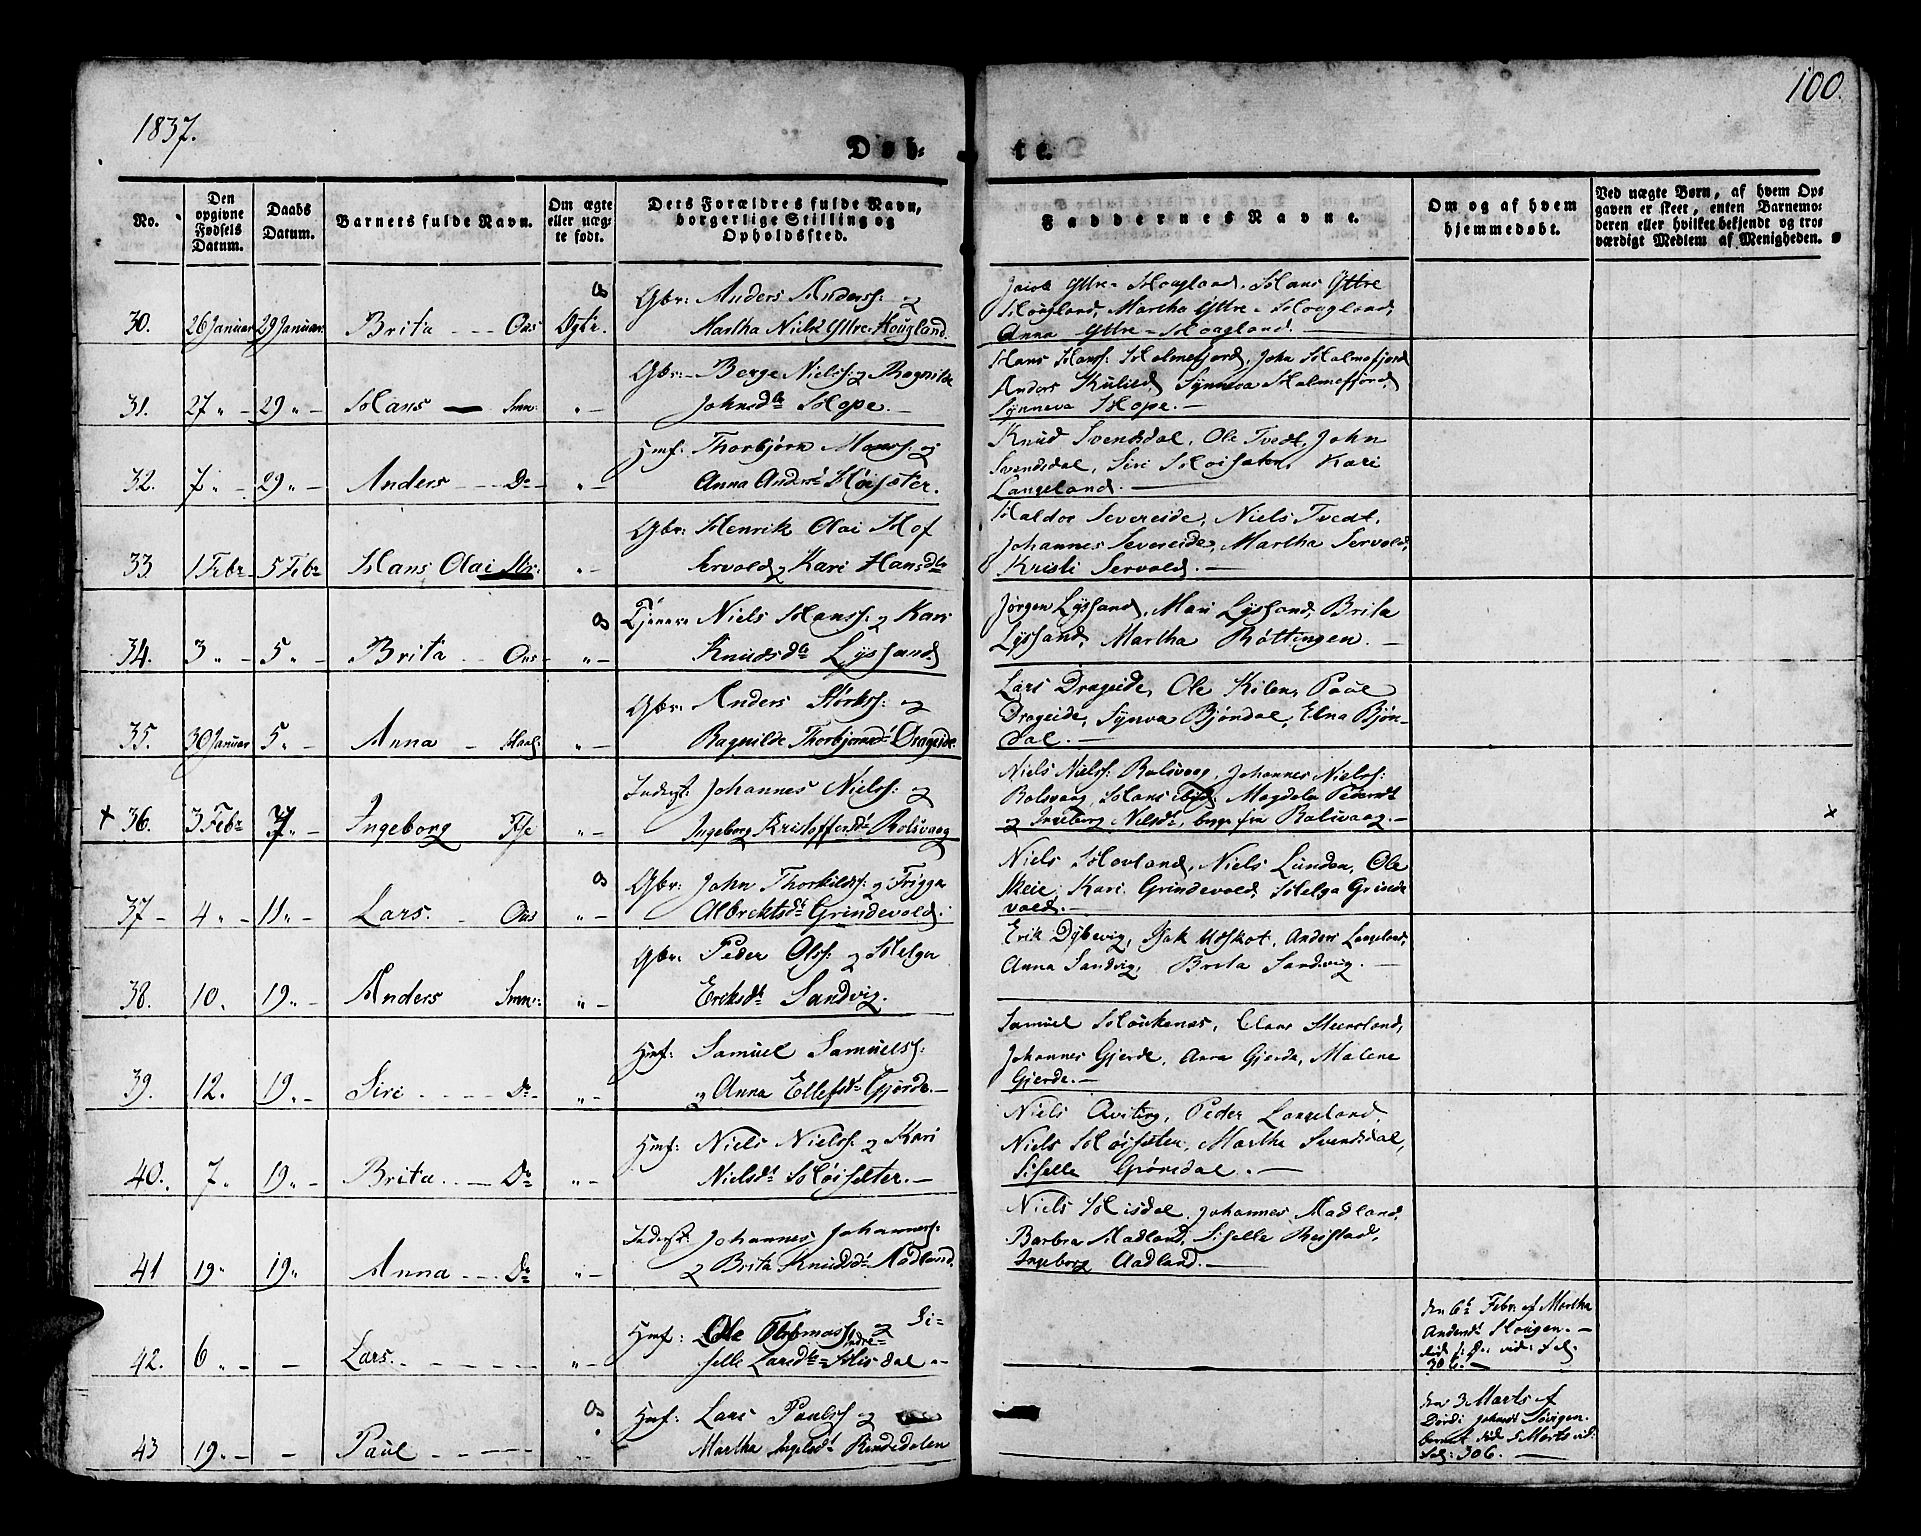 1837.
100.
Døb-
te.
No.
Den opgivne Fødsels Datum.
Daabs Datum.
Barnets fulde Navn.
Om ægte eller uægte født.
Dets Forældres fulde Navn, borgerlige Stilling og Opholdssted.
Faddernes Navne.
Om og af hvem hjemmedøbt.
Ved uægte Børn, af hvem Opgaven er skeet, enten Barnemoderen eller hvilket bekjendt og troværdigt Medlem af Menigheden.
30. 26 Januar 29 Januar Brita Øgte. Gbr: Anders Anderss: og
Martha Niels Yttre Hougland.
Jacob Yttre Hougland, Hans Yttre
Hougland, Martha Yttre Hougland,
Anna Yttre Hougland.
31. 27 " 29 " Hans Smn: " Gbr: Berge Nielss: og Ragnilde
Johnsdtr Hope.
Hans Hanss: Holmefjord, John Holmefjord
Anders Synneva Holmefjord
Synneva Hope.
32. 7 " 29 " Anders Do " Hmf: Thorbjørn Monss: og
Anna Andersd Høisæter.
Knud Svendsdal, Ole Tvedt, John
Svendsdal, Siri Kari
Langeland.
33. 1 Febr 5 Febr Hans Olai " Gbr: Henrik Olai Hof
Servold og Kari Hansdtr
Haldor Severeide, Niels Tvedt,
Johannes Severeide, Martha Servold,
Kristi Servold.
34. 3 " 5 " Brita " Niels Hanss: og Kari
Knudsdtr Lyssand
Jørgen Lyssand, Mari Lyssand, Brita
Lyssand, Martha Røttingen.
35. 30 Januar 5 " Anna " Gbr: Anders Størkss: og
Ragnilde Thorbjørnsd Drageide.
Lars Drageide, Ole Kilen, Paul
Drageide, Synva Bjøndal, Elna Bjøn-
dal.
+ 36. 3 Febr 7 " Ingeborg " Inderst: Johannes Nielss: og
Ingeborg Kristoffersd Rolsvaag
Niels Nielss: Rolsvaag, Johannes Nielss:
Rolsvaag, Hans Magdela Pedersd
og Ingeborg Nilsd, begge fra Rolsvaag.
37 4 " 11 " Lars. " Gbr: John Thorkildss: og Frigga
Albrektsd Grindevold.
Niels Hovland, Niels Lunden, Ole
Skeie, Kari Grindevold, Helga Grinde
vold.
38. 10 " 19 " Anders Smn: " Gbr: Peder Olss: og Helga
Eriksd Sandvig.
Erik Dybevig, Isak Udskot, Anders Langeland,
Anna Sandvig, Brita Sandvig.
39. 12. 19 " Siri Do " Hmf: Samuel Samuelss:
og Anna Ellefsd Gjerde.
Samuel Claus
Johannes Gjerde, Anna Gjerde, Malene
Gjerde.
40. 7 " 19 " Brita Do " Hmf: Niels Nielss: og Kari
Nielsd Høisæter.
Niels Peder Langeland,
Niels Høisæter, Martha Svendsdal,
Siselle Grønsdal.
41 19 " 19 " Anna Do " Inderst: Johannes Johanness:
og Brita Knudsd Aadland.
Niels Hisdal, Johannes Aadland,
Barbra Aadland, Siselle
Ingeborg Aadland.
42. 6 " Lars. " Hmf: Ole Thomass og Si-
selle Larsdtr Hisdal
den 6te Febr. af Martha
Andersd Hougen.
306.
43 19 " Paul " Hmf: Lars Paulss og
Martha Ingelsd Rindedalen
den 3 Marts af
Dordi Johansd
barnet død 5 Marts vid:
Fol: 306.